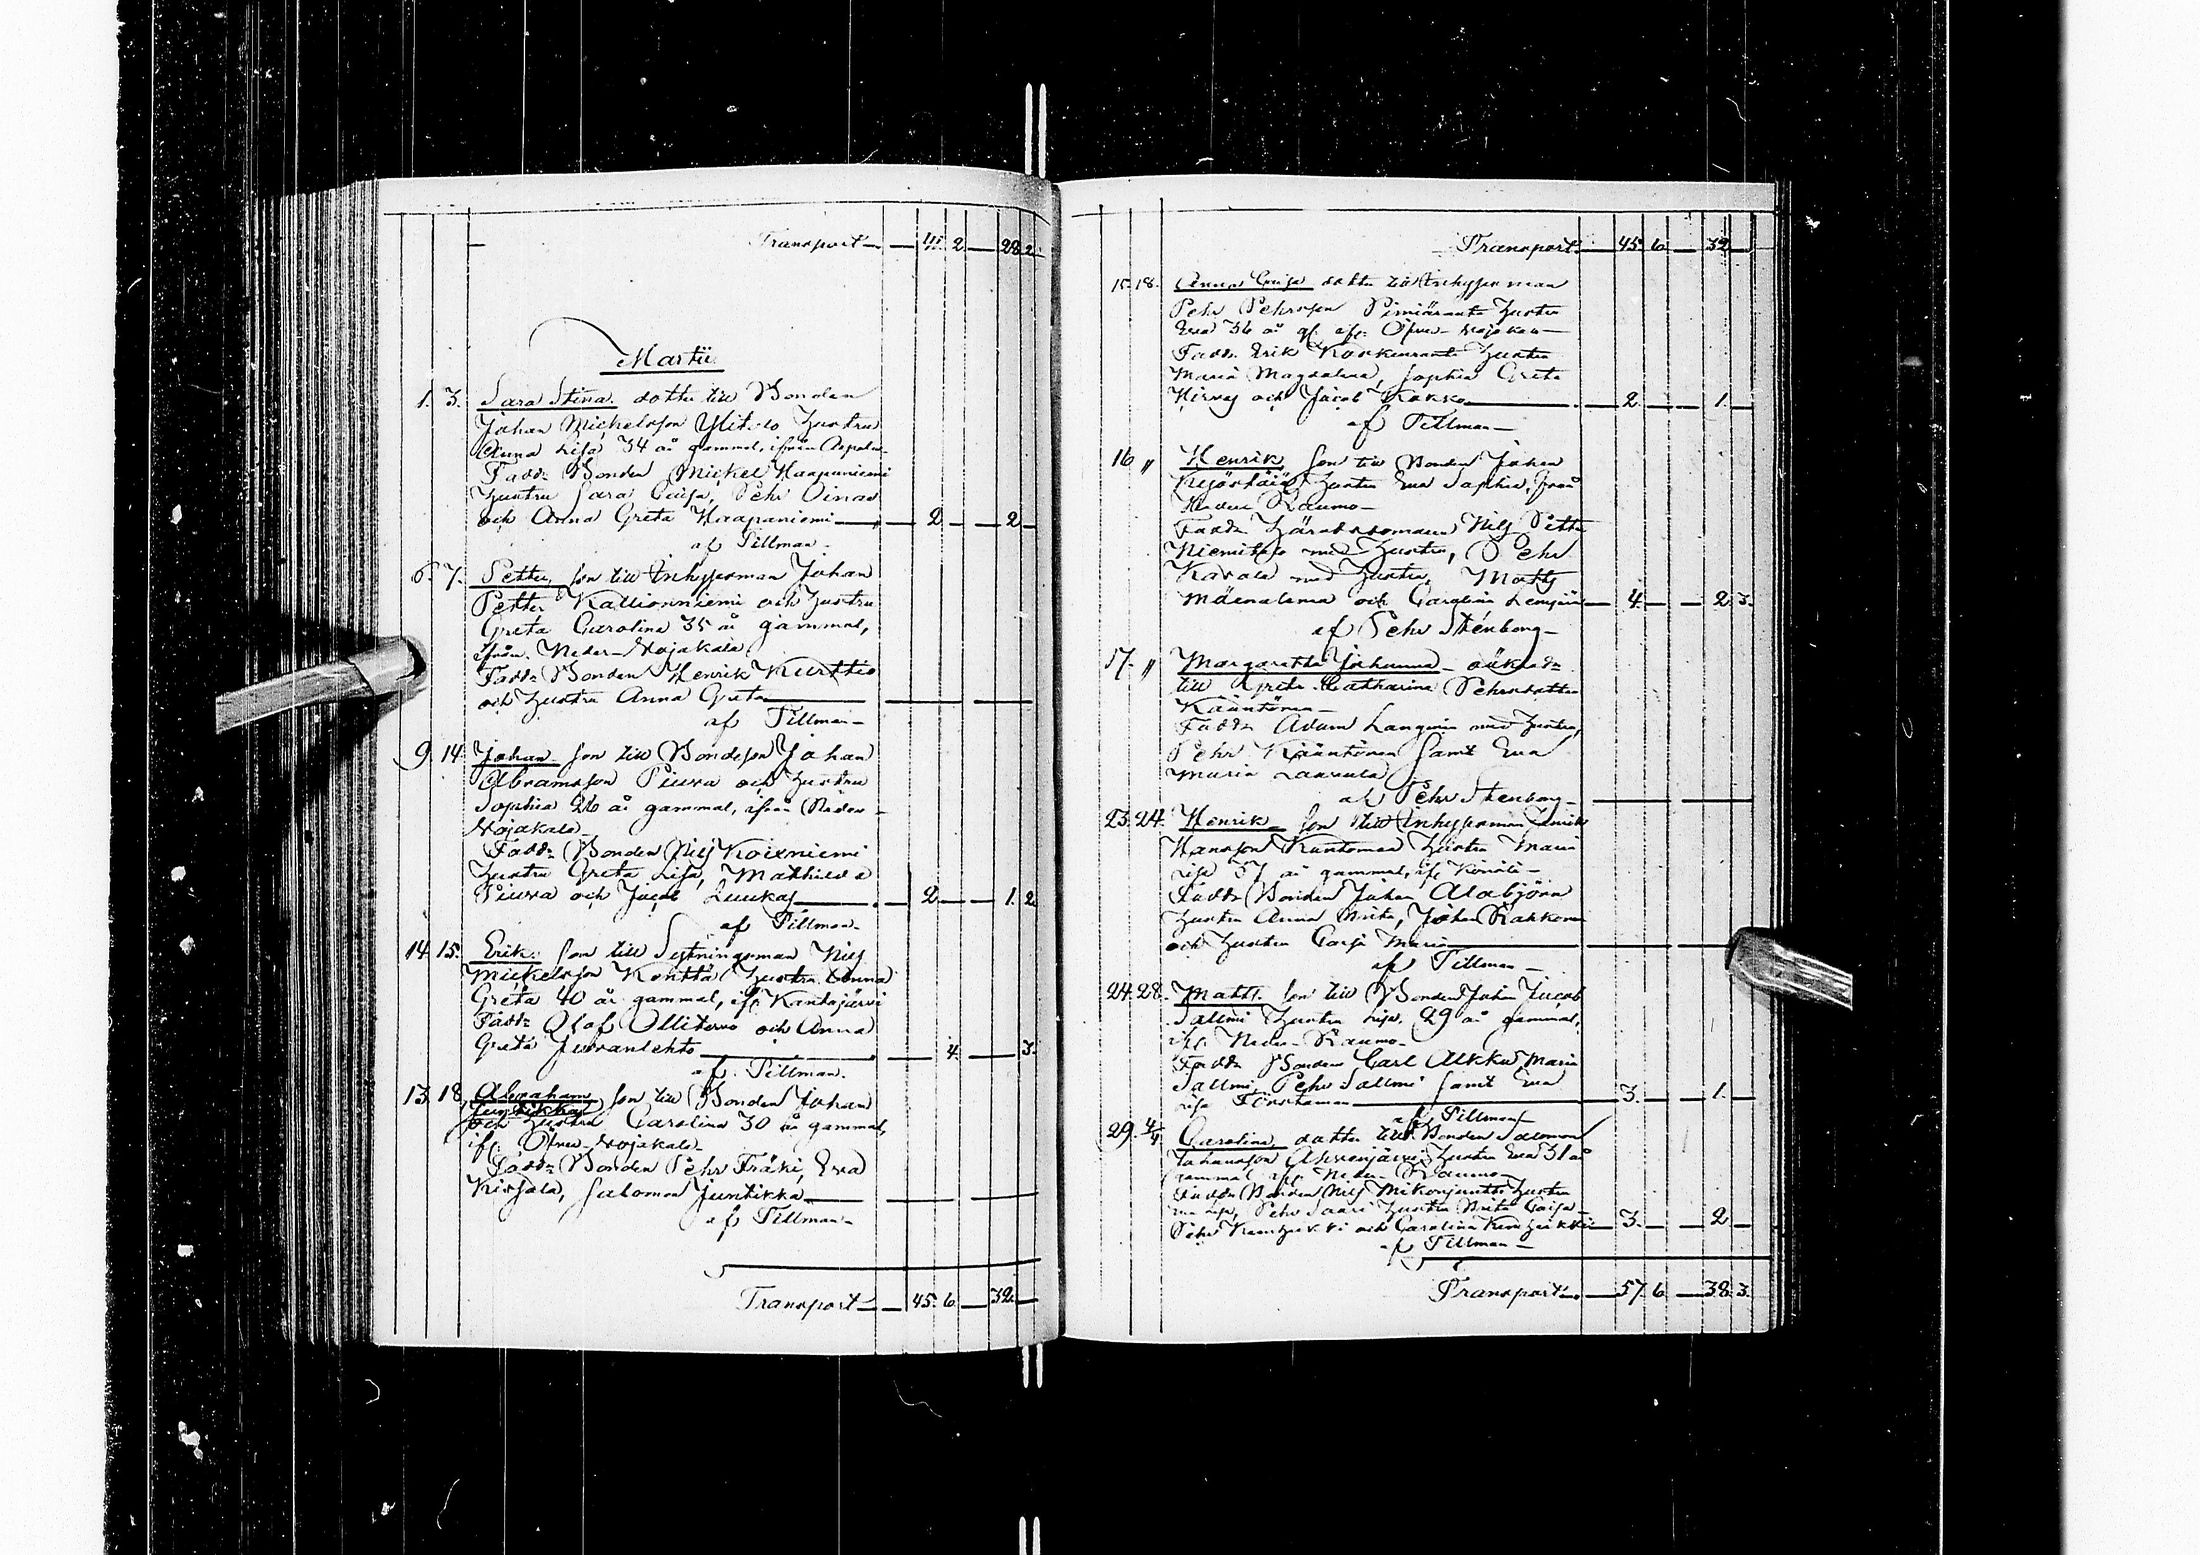 Transport 41. 2 28 2
Martii
1. 3. Sara Stina dotter till Bonden
Johan Michelsson Ylitalo hustru
Anna Lisa 34 år gammal, ifrån
Fadd: Bonden Mickel Haapaniemi
hustru Sara Caisa, Pehr Oinas
och Anna Greta Haapaniemi 2 2
af Tillman
6. 7. Petter, son till Inhysesman Johan
Petter Kallionniemi och hustru
Greta Carolina 35 år gammal,
ifrån Neder-Vojakala
Fadd: Bonden Henrik Kurttio
och hustru Anna Greta
af Tillman
9. 14. Johan son till Bondeson Johan
Abramsson Piuva och hustru
Sophia 26 år gammal, ifrån Neder-
Vojakala
Fadd: Bonden Nils Koivuniemi
hustru Greta Lisa, Mathilda
Piuva och Jacob Luukas 2 1. 2
af Tillman
14. 15. Erik son till Sytningsman Nils
Mickelsson Konttä hustru Anna
Greta 40 år gammal, ifr. Kantojärvi
Fadd: Olof Ollitervo och Anna
Greta Juvanlehto 4. 3.
af Tillman.
13. 18. Abraham, son till Bonden Johan
Juntikka
och hustru Carolina 30 år gammal,
ifr. Öfver-Vojakala
Fadd: Bonden Pehr Fräki, Eva
Kirjala, Salomon Juntikka
af Tillman
Transport 45. 6. 32.
Transport 45. 6 32
15. 18. Anna Caisa dotter till Inhysesman
Pehr Pehrsson hustru
Eva 36 år gl. ifr. Öfver-Vojakala
Fadd: Erik hustru
Maria Magdalena, Sophia Greta
och Jacob Kakko 2. 1.
af Tillman
16 " Henrik, son till Bonden Johan
hustru Eva Sophia, från
Neder Raumo
Fadd: Nils Petter
Niemitalo med hustru, Pehr
Kavala med hustru, Matts
och Carolina 4. 2 3.
af Pehr Stenborg
17. " Margaretha Johanna
till Greta Catharina Pehrsdotter
Kääntönen
Fadd: Adam Langin med hustru,
Pehr Kääntönen samt Eva
Maria
af Pehr Stenborg
23. 24. Henrik son till Inhysesman Henrik
Hansson hustru Maria
Lisa 37 år gammal, ifr.
Fadd: Bonden Johan Alabjörn
hustru Anna Brita, Johan
och hustru Caisa Maria
af Tillman
24. 28. Matts son till Bonden Johan Jacob
Sallmi hustru Lisa 29 år gammal,
ifr. Neder-Raumo
Fadd: Bonden Carl Alkku, Maria
Sallmi, Pehr Sallmi samt Eva
Lisa 3. 1.
af Tillman
29. 4/4 Carolina dotter till Bonden Salomon
Johansson hustru Eva 31 år
gammal ifr. Neder-Raumo
Fadd: Bonden Nils hustru
Eva Lisa, Pehr Saari hustru Brita Caisa
Pehr och Carolina 3. 2
af Tillman
Transport 57. 6 38. 3.